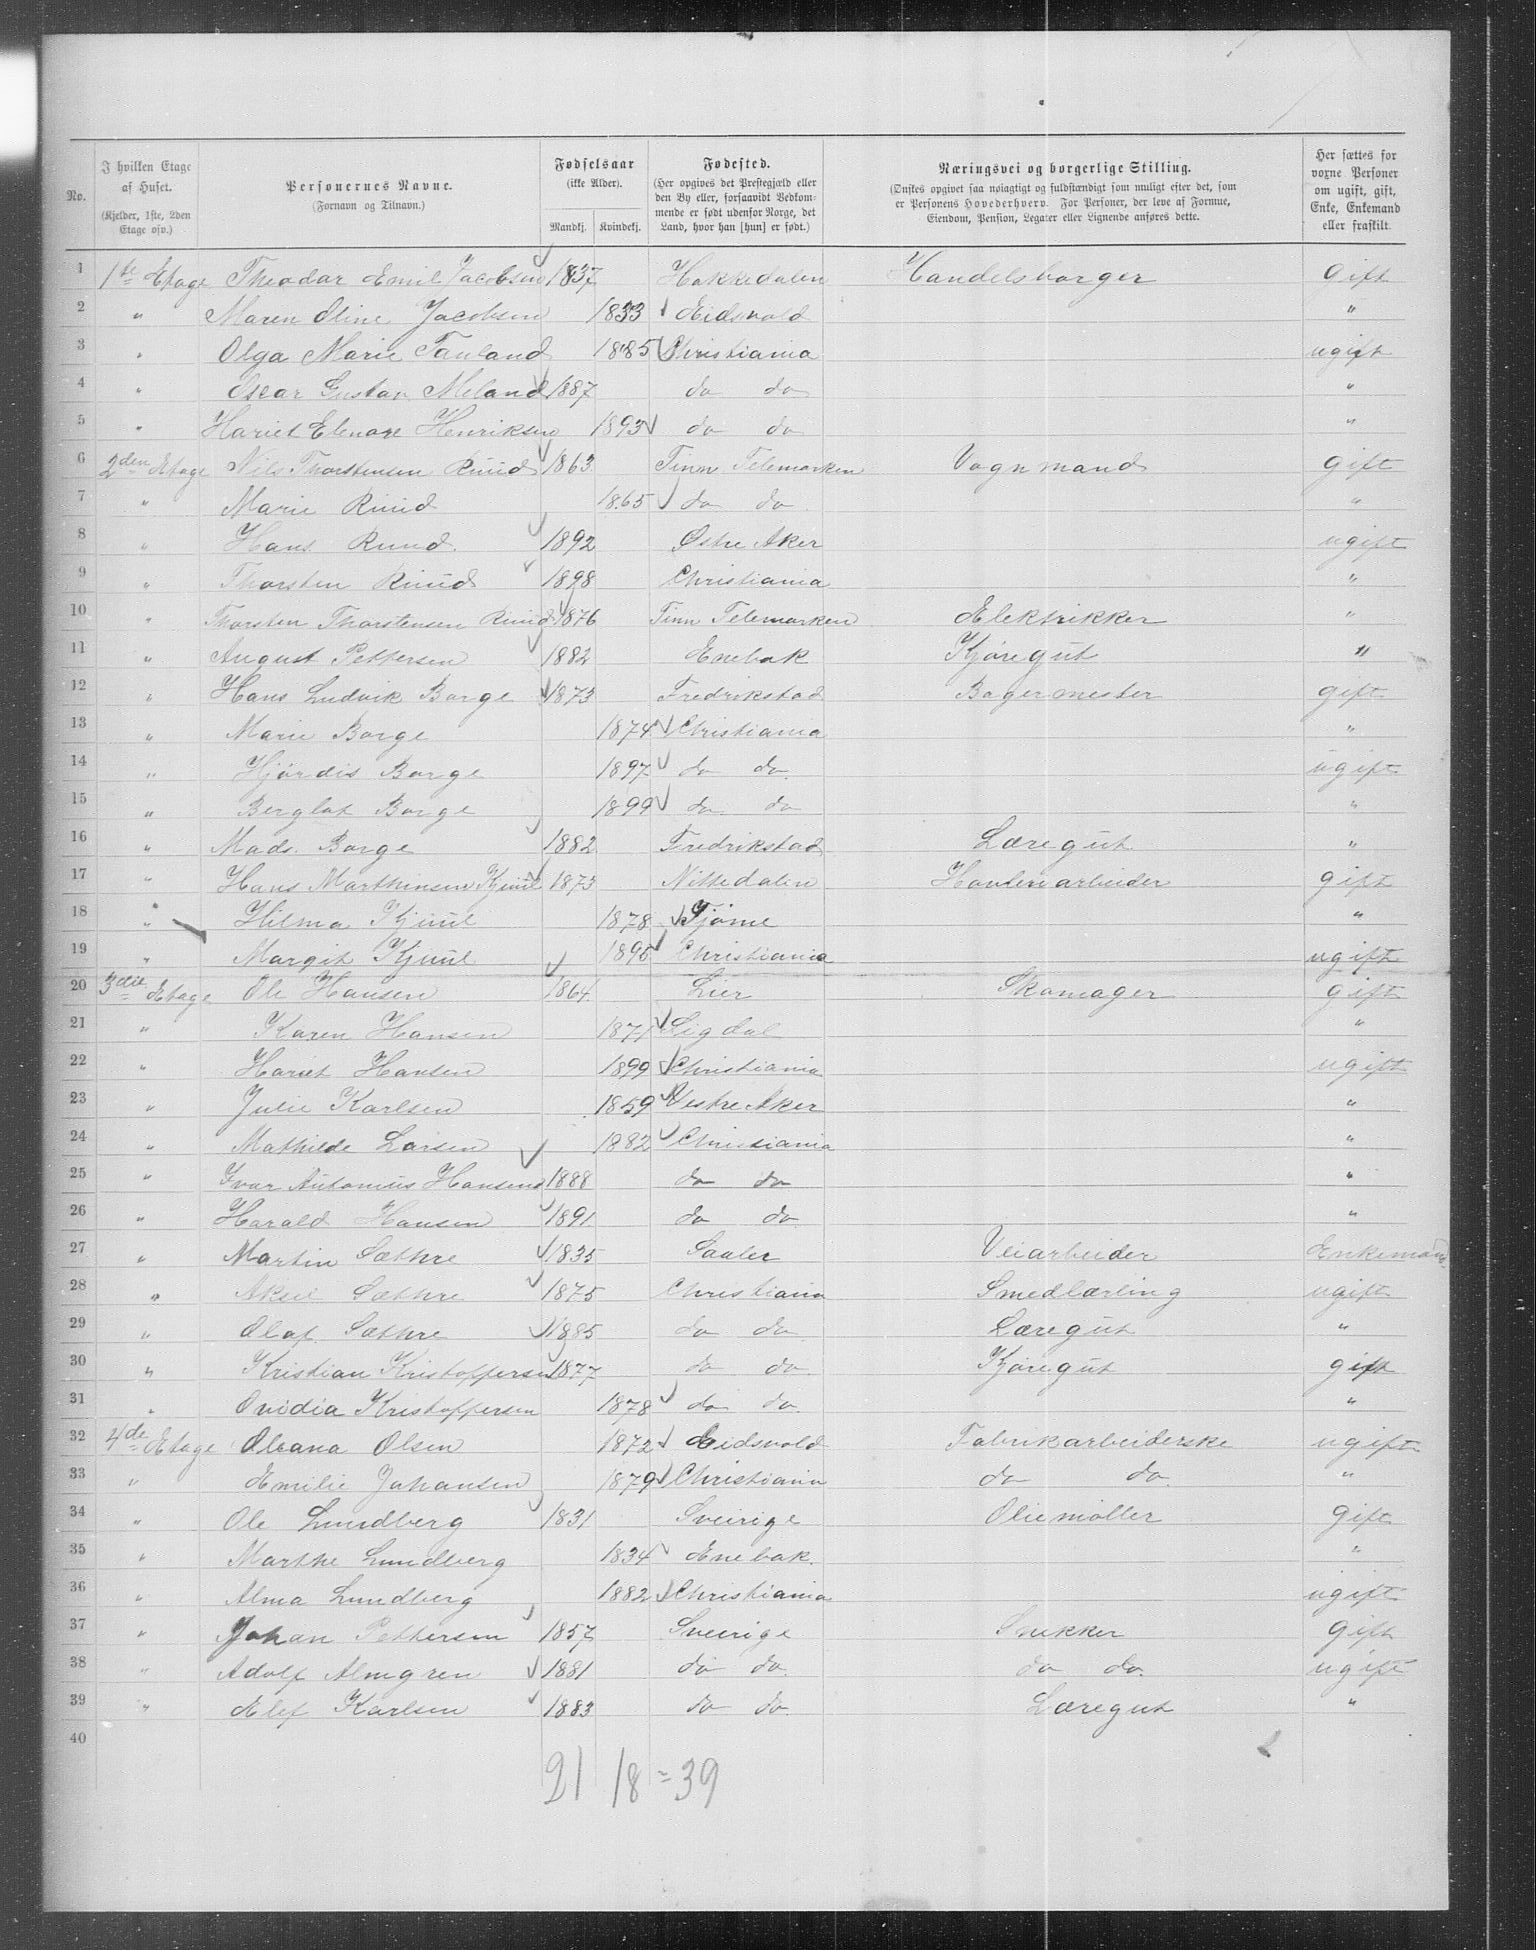 No.
I hvilken Etage af Huset. (Kjelder, 1ste, 2den Etage osv.)
Personernes Navne. (Fornavn og Tilnavn.)
Fødselsaar (ikke Alder). Mandkj. Kvindekj.
Fødested. (Her opgives det Prestegjæld eller den By eller, forsaavidt Vedkommende er født udenfor Norge, det Land, hvor han [hun] er født.)
Næringsvei og borgerlige Stilling. (Ønskes opgivet saa nøiagtigt og fuldstændigt som muligt efter det, som er Personens Hovederhverv. For Personer, der leve af Formue, Eiendom, Pension, Legater eller Lignende anføres dette.)
Her sættes for voxne Personer om ugift, gift, Enke, Enkemand eller fraskilt.
1 1ste Etage Theodor Emil Jacobsen 1837 Hakkedalen Handelsborger gift
2 " Maren Oline Jacobsen 1833 Eidsvold "
3 " Olga Marie Tanland 1885 Christiania ugift
4 " Oscar Gustav Meland 1887 do do "
5 " Hariet Elenore Henriksen 1893 do do "
6 2den Etage Nils Thorstensen Ruud 1863 Tinn Telemarken Vognmand gift
7 " Marie Ruud 1865 do do "
8 " Hans Ruud 1892 Østre Aker ugift
9 " Thorsten Ruud 1898 Christiania "
10 " Thorsten Thorstensen Ruud 1876 Tinn Telemarken Elektrikker "
11 " August Pettersen 1882 Enebak Kjøregut "
12 " Hans Ludvik Borge 1873 Fredrikstad Bagermester gift
13 " Marie Borge 1874 Christiania "
14 " Hjördis Borge 1897 do do ugift
15 " Berglot Borge 1899 do do "
16 " Mads Borge 1882 Fredrikstad Læregut "
17 " Hans Marthinsen Kjuul 1873 Nittedalen gift
18 " Hilma Kjuul 1878 Tjøme "
19 " Margit Kjuul 1895 Christiania ugift
20 3die Etage Ole Hansen 1864 Lier Skomager gift
21 " Karen Hansen 1871 Sigdal "
22 " Hariet Hansen 1899 Christiania ugift
23 " Julie Karlsen 1859 Vestre Aker "
24 " Mathilde Larsen 1882 Christiania "
25 " Ivar Antonius Hansen 1888 do do "
26 " Harald Hansen 1891 do do "
27 " Martin Sæthre 1835 Veiarbeider Enkemand
28 " Aksel Sæthre 1875 Christiania Smedlærling ugift
29 " Olaf Sæthre 1885 do do Læregut "
30 " Kristian Kristoffersen 1877 do do Kjøregut gift
31 " Ovidia Kristoffersen 1878 do do "
32 4de Etage Oleana Olsen 1872 Eidsvold Fabrikarbeiderske ugift
33 " Emilie Johansen 1879 Christiania do do "
34 " Ole Lundberg 1831 Sveirige Oliemøller gift
35 " Marthe Lundberg 1834 Enebak "
36 " Alma Lundberg 1882 Christiania ugift
37 " Johan Pettersen 1857 Sveirige Snekker gift
38 " Adolf Almgren 1881 do do do do ugift
39 " Elef Karlsen 1883 do do Læregut "
40
21 18 = 39